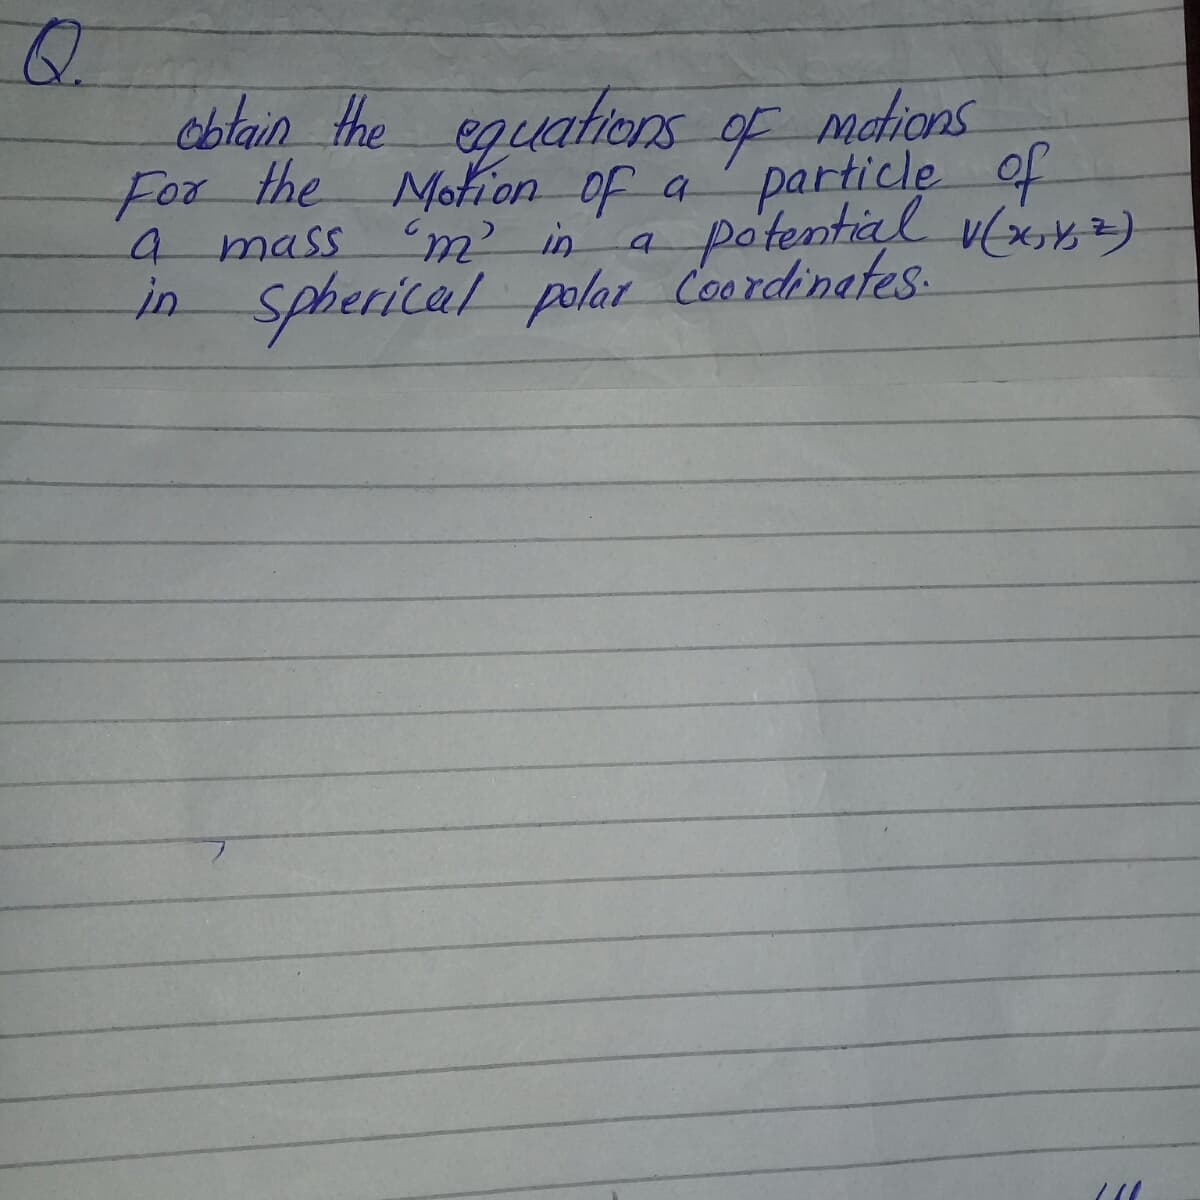 Q.
obtain the equations of motions
For the Motion of a particle of
a mass 'm' in a potential v(x,y,z)
in spherical polar coordinates.